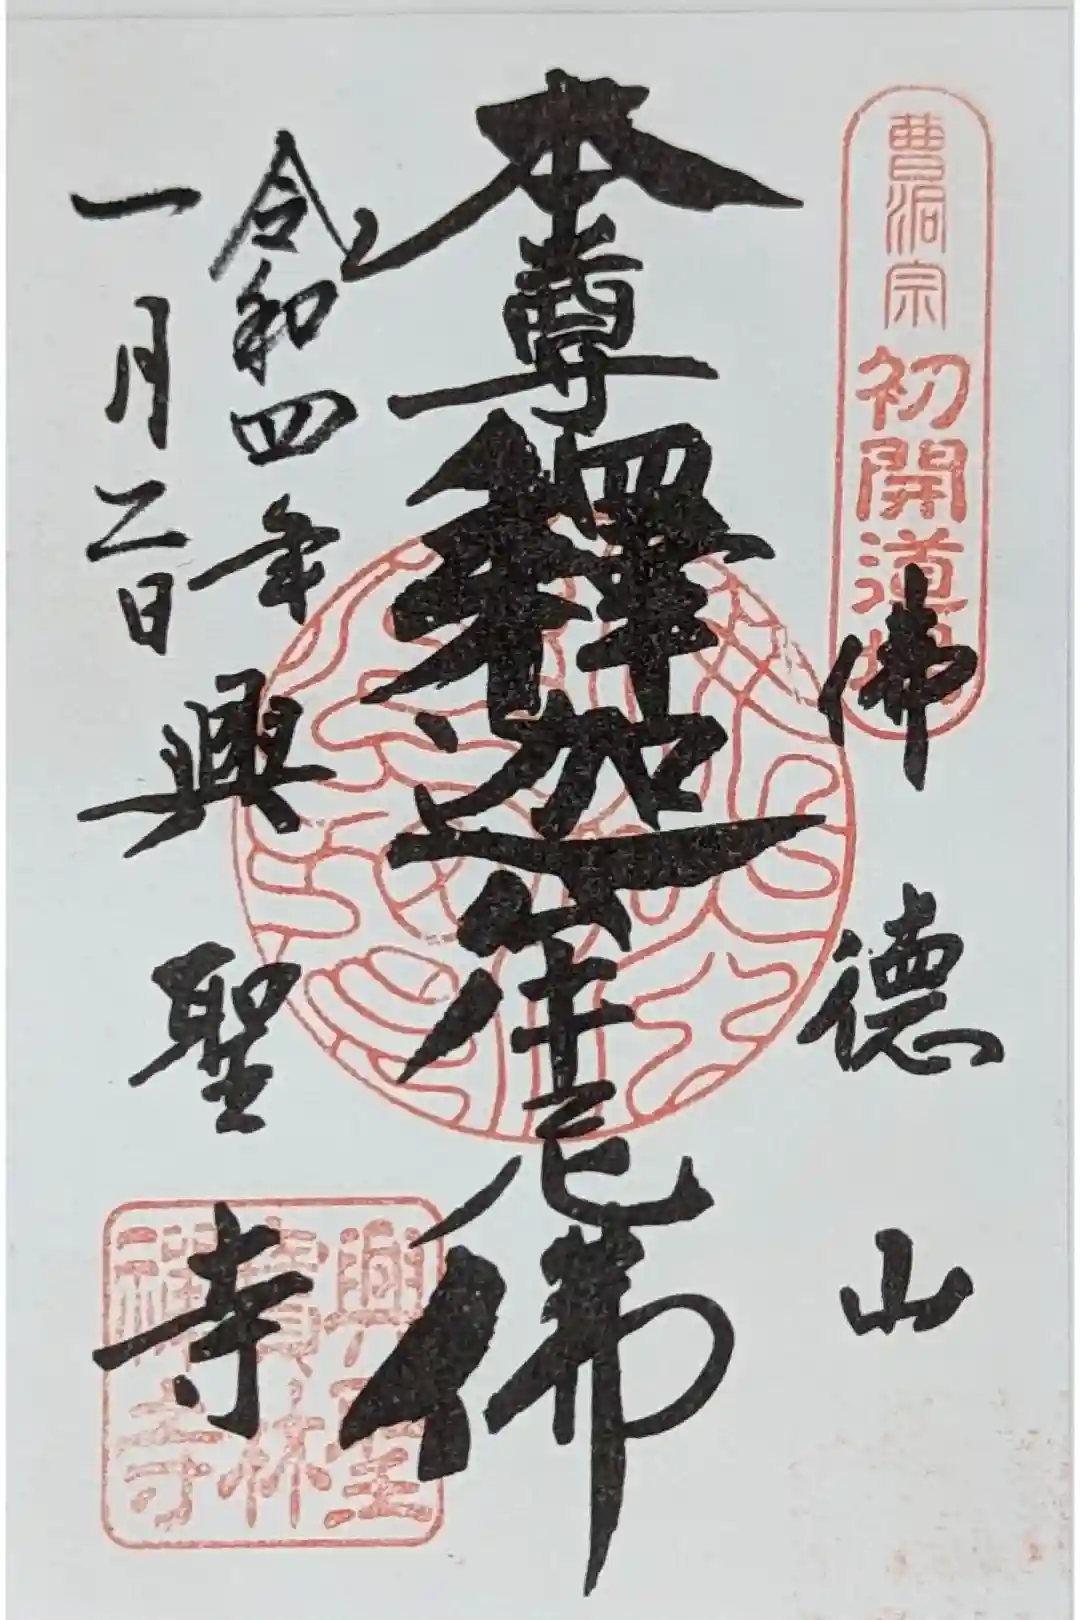 曹洞宗 初開道場
佛德山
本尊釋迦牟尼佛
令和四年
一月二日
興聖寺
興聖寶林禪寺